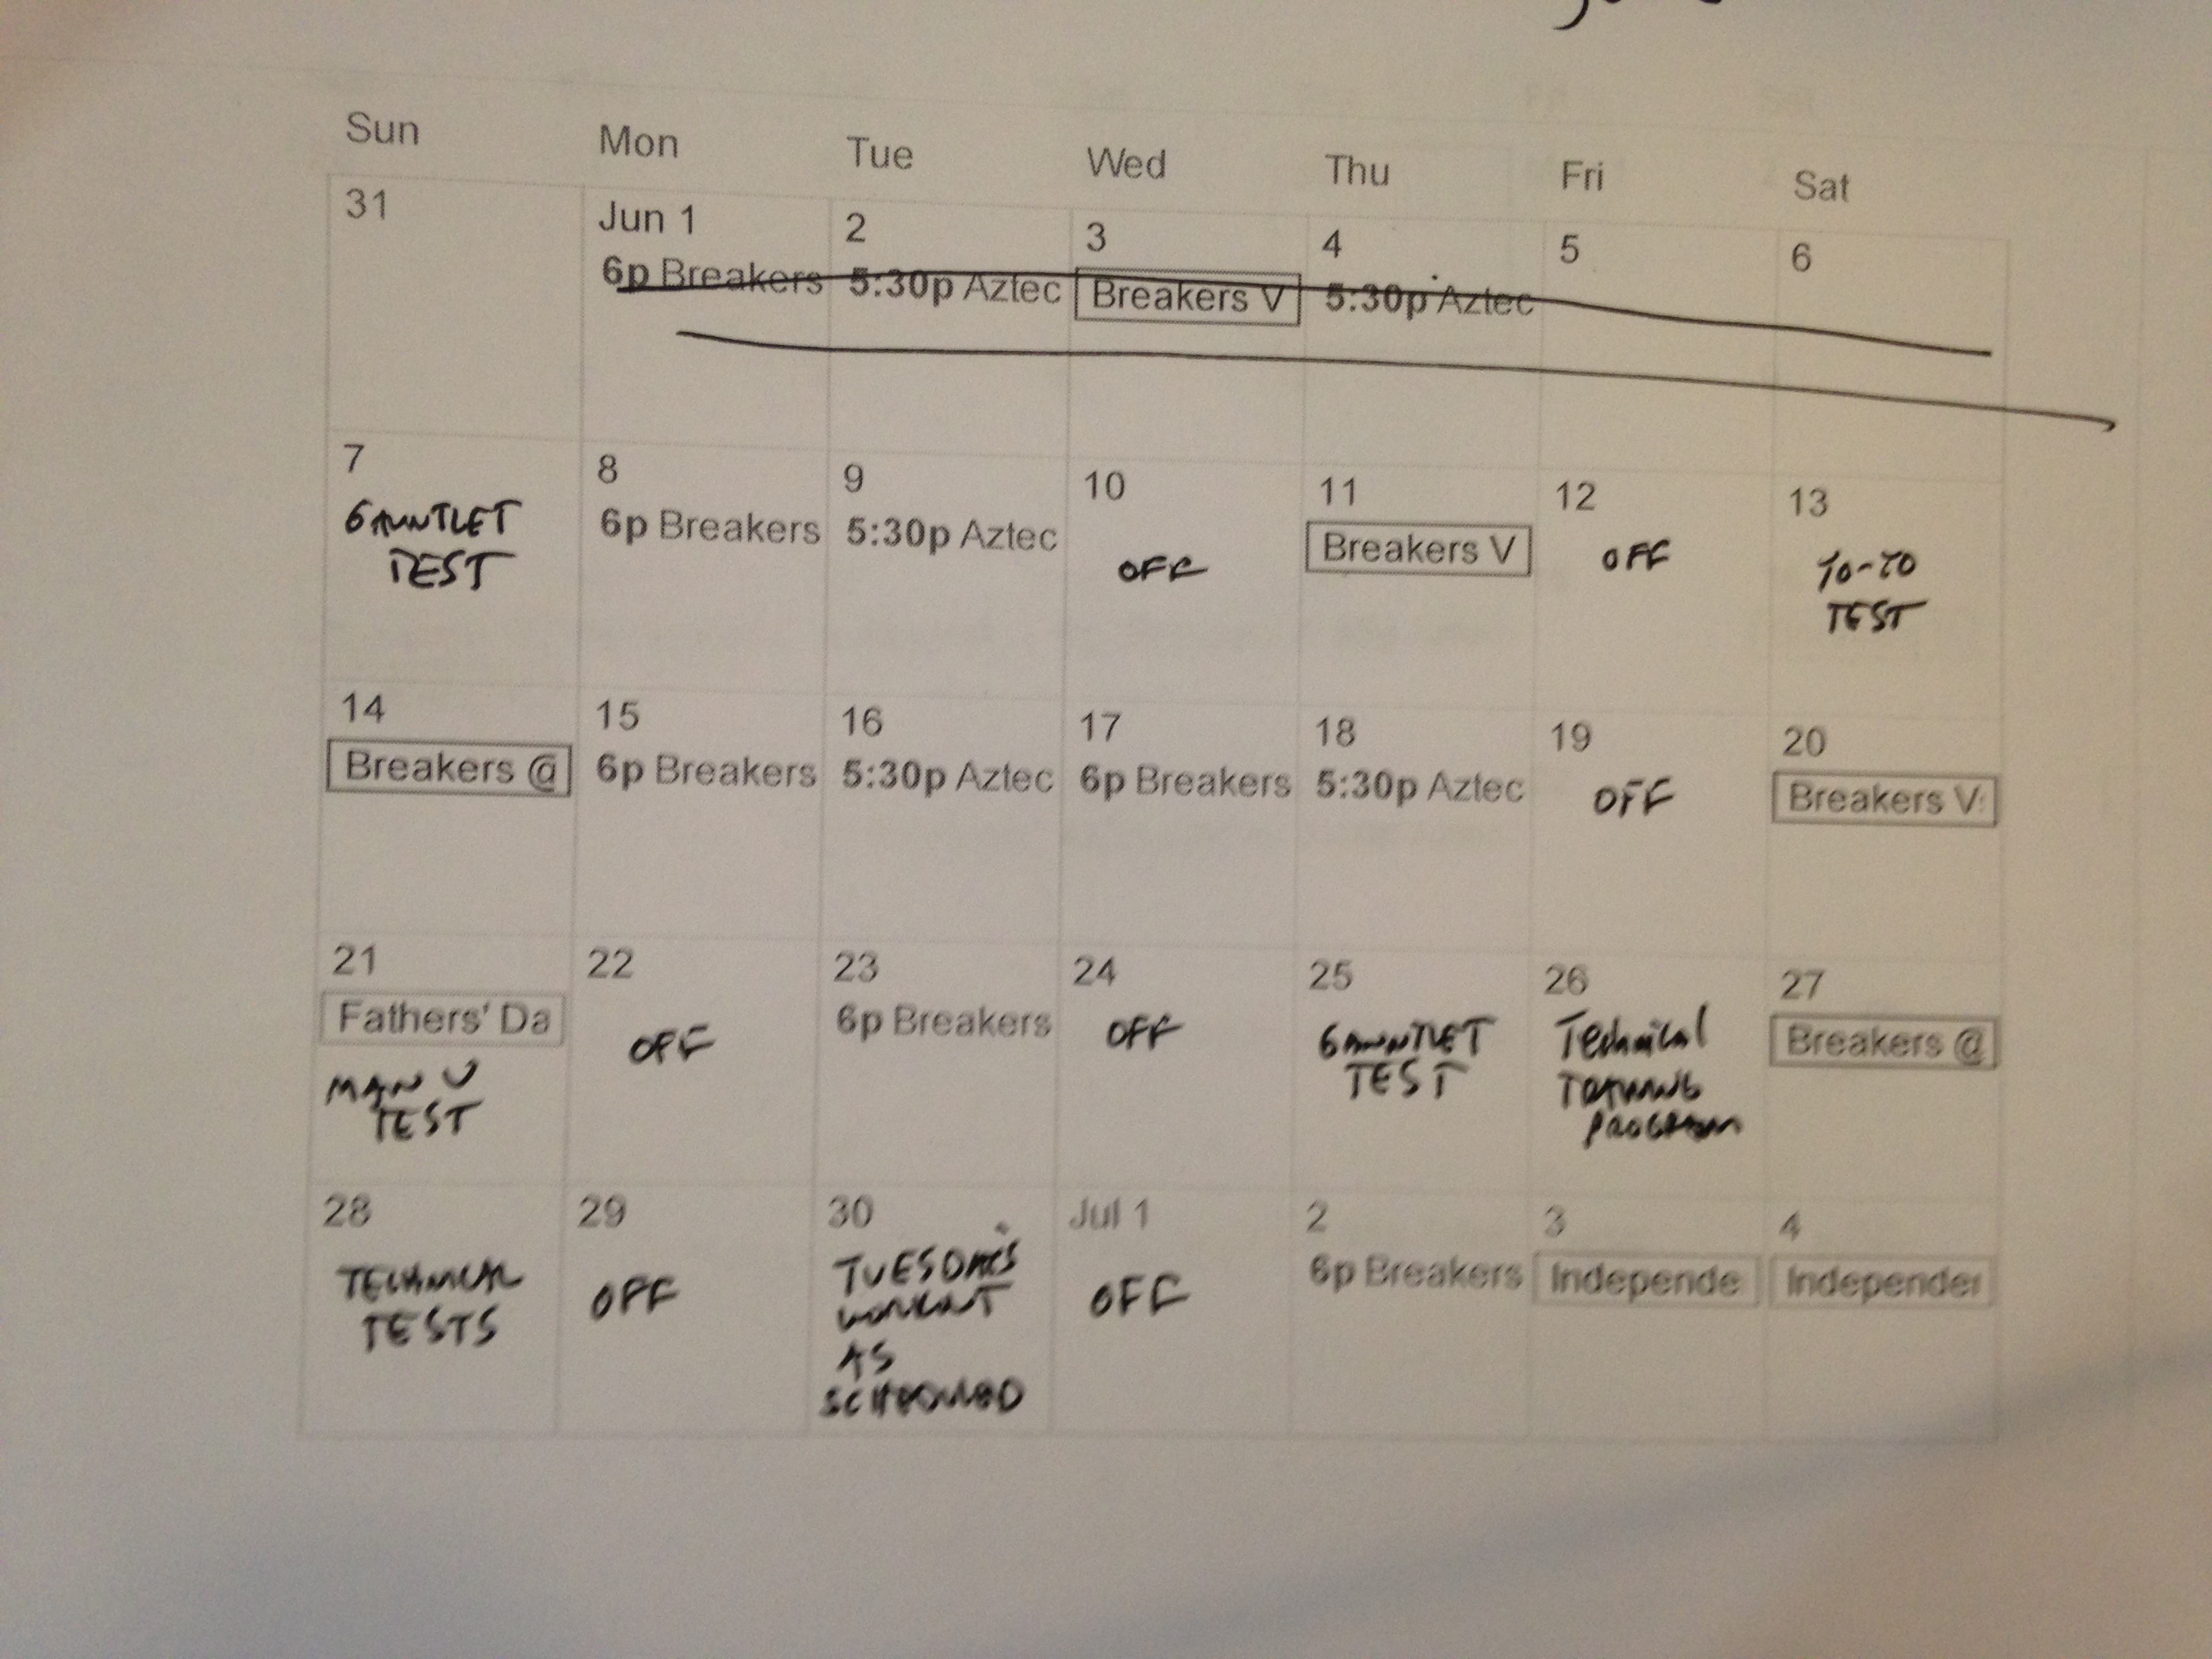 Sun Mon Tue Wed Thu Fri Sat
31 Jun 1 2 3 4 5 6
6p Breakers 5:30p Aztec Breakers V 5:30p Aztec
7 8 9 10 11 12 13
GAUNTLET 6p Breakers 5:30p Aztec OFF Breakers V OFF YO-YO
TEST TEST
14 15 16 17 18 19 20
Breakers @ 6p Breakers 5:30p Aztec 6p Breakers 5:30p Aztec OFF Breakers V
21 22 23 24 25 26 27
Fathers' Da OFF 6p Breakers OFF GAUNTLET Technical Breakers @
MAN U TEST TRAINING
TEST PROGRAM
28 29 30 Jul 1 2 3 4
TECHNICAL OFF TUESDAY'S OFF 6p Breakers Independe Independe
TESTS WORKOUT
AS
SCHEDULED